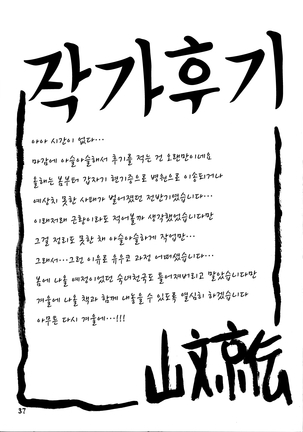 작가후기
아아 시간이 없다…
마감에 아슬아슬해서 후기를 적는 건 오랜만이네요
올해는 봄부터 갑자기 현기증으로 병원으로 이송되거나
예상치 못한 사태가 벌어졌던 전반기였습니다…
이래저래 근황이라도 적어볼까 생각했었습니다만
그걸 정리도 못한 채 아슬아슬하게 작업만…
그래서…그런 이유로 유우코 과정 어떠셨습니까…
봄에 나올 예정이었던 숙녀천국도 틀어져버리고 말았습니다만
겨울에 나올 책과 함께 내놓을 수 있도록 열심히 하겠습니다
아무튼 다시 겨울에…!!!
山文京伝
37